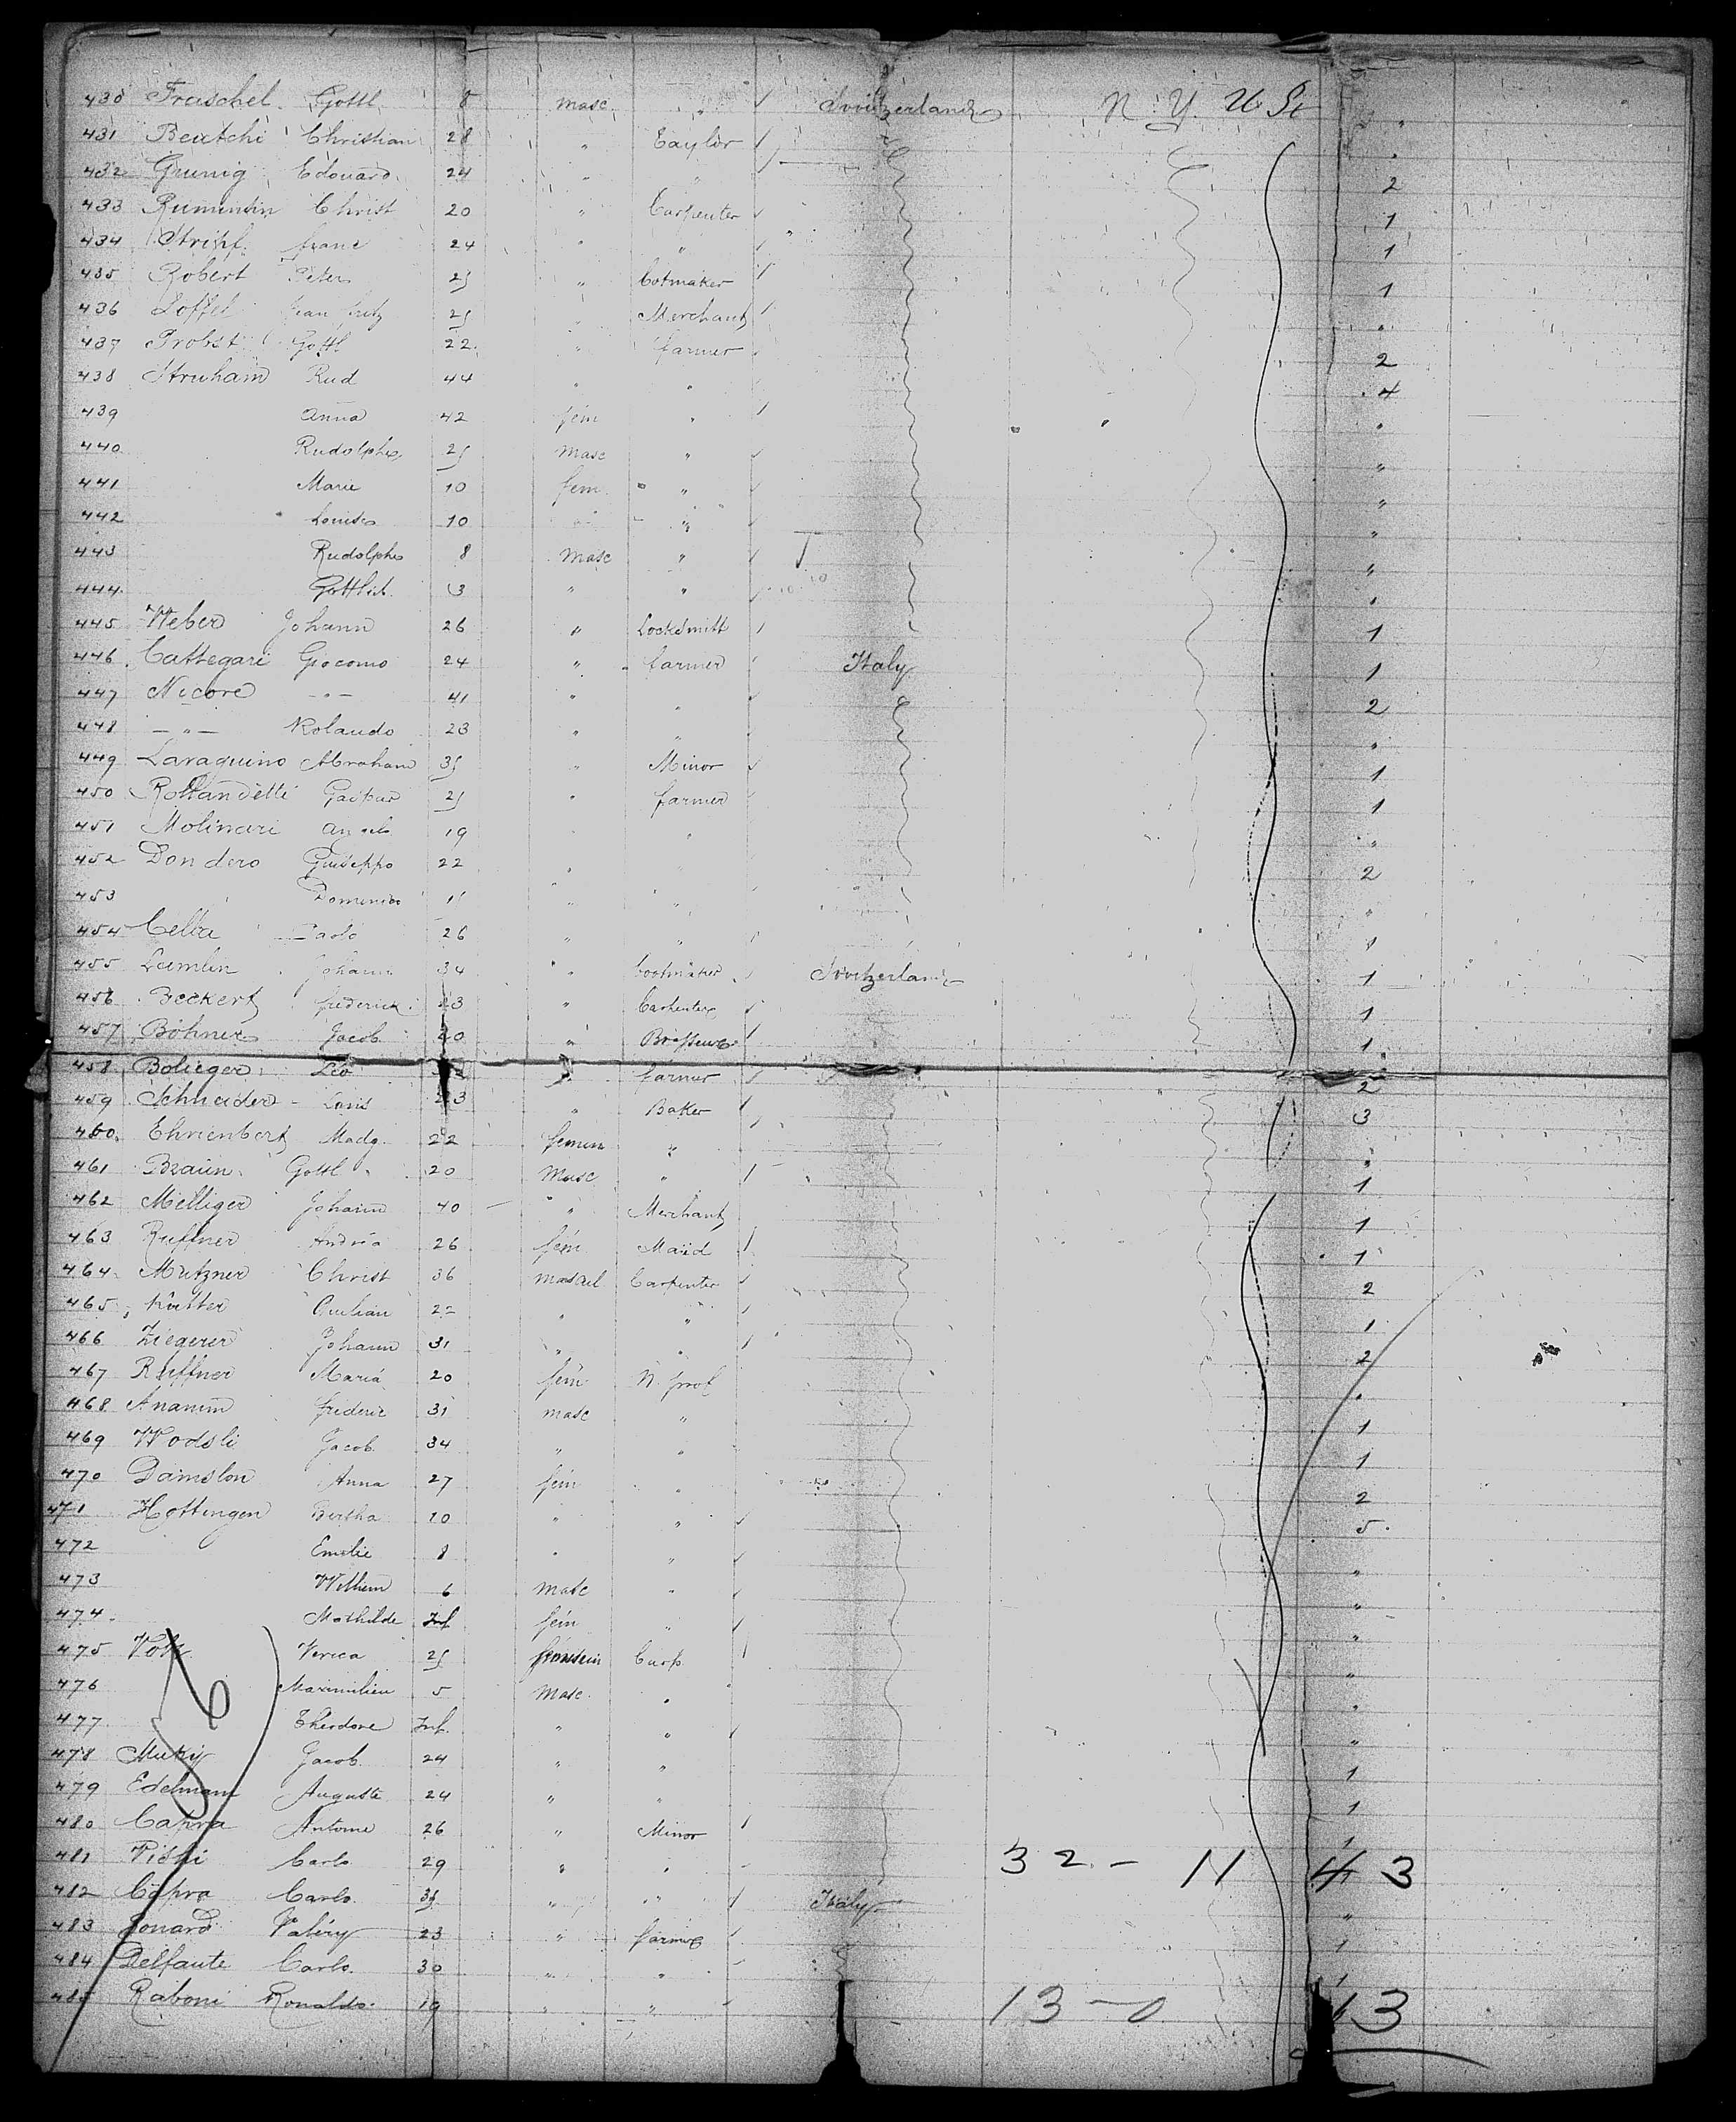 430 Fraschel Gottl 8 masc " Switzerland N. Y. U St
431 Beutchi Christian 28 " Taylor "
432 Grunig Edouard 24 " " 2
433 Christ 20 " Carpenter 1
434 franc 24 " " 1
435 Robert Peter 25 " Botmaker 1
436 Loffel Jean fritz 25 " Merchant "
437 Probst Gottl 22 " farmer 2
438 Struham Rud 44 " " 4
439 Anna 42 fem " "
440 Rudolphe 25 masc " "
441 Marie 10 fem " "
442 Louise 10 " " "
443 Rudolphe 8 masc " "
444 Gottlieb 3 " " "
445 Weber Johann 26 " Locksmitt 1
446 Cattegari Giocomo 24 " farmer Italy 1
447 Nicore - " - 41 " " 2
448 - " - Rolando 23 " " "
449 Lavaguino Abraham 35 " Minor 1
450 Rollandelli Gaspar 25 " farmer 1
451 Molinari Angelo 19 " " "
452 Dondero Guiseppo 22 " " 2
453 Domenico 11 " " "
454 Cella Paolo 26 " " 1
455 Lumlin Johann 34 " bootmaker Switzerland 1
456 Beckert frederick 23 " Carpenter 1
457 Böhner Jacob 20 " 1
458 Bolieger Leo " farmer 2
459 Schneider Louis 23 " Baker 3
460 Ehrienbert Madg. 22 femin " "
461 Braün Gottl 20 Masc " 1
462 Melliger Johann 40 " Merchant 1
463 Ruffner Andréa 26 fem Maid 1
464 Mutzner Christ 36 mascul Carpenter 2
465 Kutter 22 " " 1
466 Ziegerer Johann 31 " " 2
467 Ruffner Maria 20 fem N. prof "
468 Ananim frederic 31 masc " 1
469 Wodsli Jacob 34 " " 1
470 Damslon Anna 27 fem " 2
471 Hottengen Bertha 10 " " 5
472 Emilie 8 " " "
473 Wilhem 6 masc " "
474 Mathilde Inf fem " "
475 Verica 25 Carp "
476 Maximilien 5 Masc "
477 Theodore Inf. " " "
478 Jacob 24 " " 1
479 Edelmann Auguste 24 " " 1
480 Capra Antome 26 " Minor 1
481 Carlo 29 " " 32 - 11 43
482 Capra Carlo 35 " " Italy "
483 Jonard Valéry 23 " farmer 1
484 Delfaute Carlo 30 " " 1
485 Raboni Ronaldo 19 " " 13 - 0 13